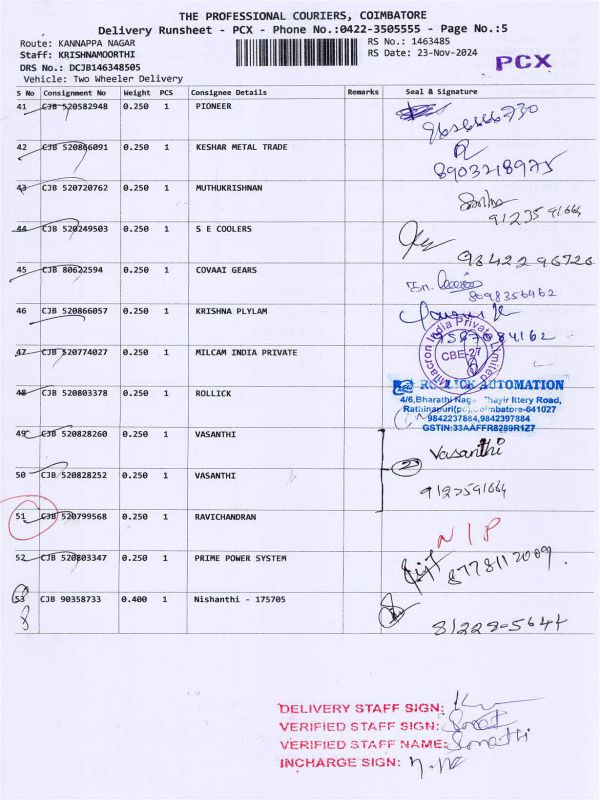 THE PROFESSIONAL COURIERS, COIMBATORE
Delivery Runsheet - PCX - Phone No.:0422-3505555 - Page No.:5
Route: KANNAPPA NAGAR
RS No.: 1463485
Staff: KRISHNAMOORTHI
RS Date: 23-Nov-2024
PCX
DRS No.: DCJB146348505
Vehicle: Two Wheeler Delivery
S No Consignment No Weight PCS Consignee Details Remarks Seal & Signature
41 CJB 520582948 0.250 1 PIONEER
42 CJB 520866091 0.250 1 KESHAR METAL TRADE
8903218975
43 CJB 520720762 0.250 1 MUTHUKRISHNAN
44 CJB 520249503 0.250 1 S E COOLERS
9842296726
45 CJB 80622594 0.250 1 COVAAI GEARS
8098356462
46 CJB 520866057 0.250 1 KRISHNA PLYLAM
47 CJB 520774027 0.250 1 MILCAM INDIA PRIVATE
Milacron India Private Limited
CBE-27
48 CJB 520803378 0.250 1 ROLLICK
ROLLICK AUTOMATION
4/6,Bharathi Nagar Thayir Ittery Road,
Rathinapuri(po),Coimbatore-641027
9842237884,9842397884
GSTIN:33AAFFR8289R1Z7
49 CJB 520828260 0.250 1 VASANTHI
Vasanthi
50 CJB 520828252 0.250 1 VASANTHI
2
9123591664
51 CJB 520799568 0.250 1 RAVICHANDRAN
N I P
52 CJB 520803347 0.250 1 PRIME POWER SYSTEM
8778112009
53 CJB 90358733 0.400 1 Nishanthi - 175705
81228-5644
DELIVERY STAFF SIGN:
VERIFIED STAFF SIGN:
VERIFIED STAFF NAME:
INCHARGE SIGN: